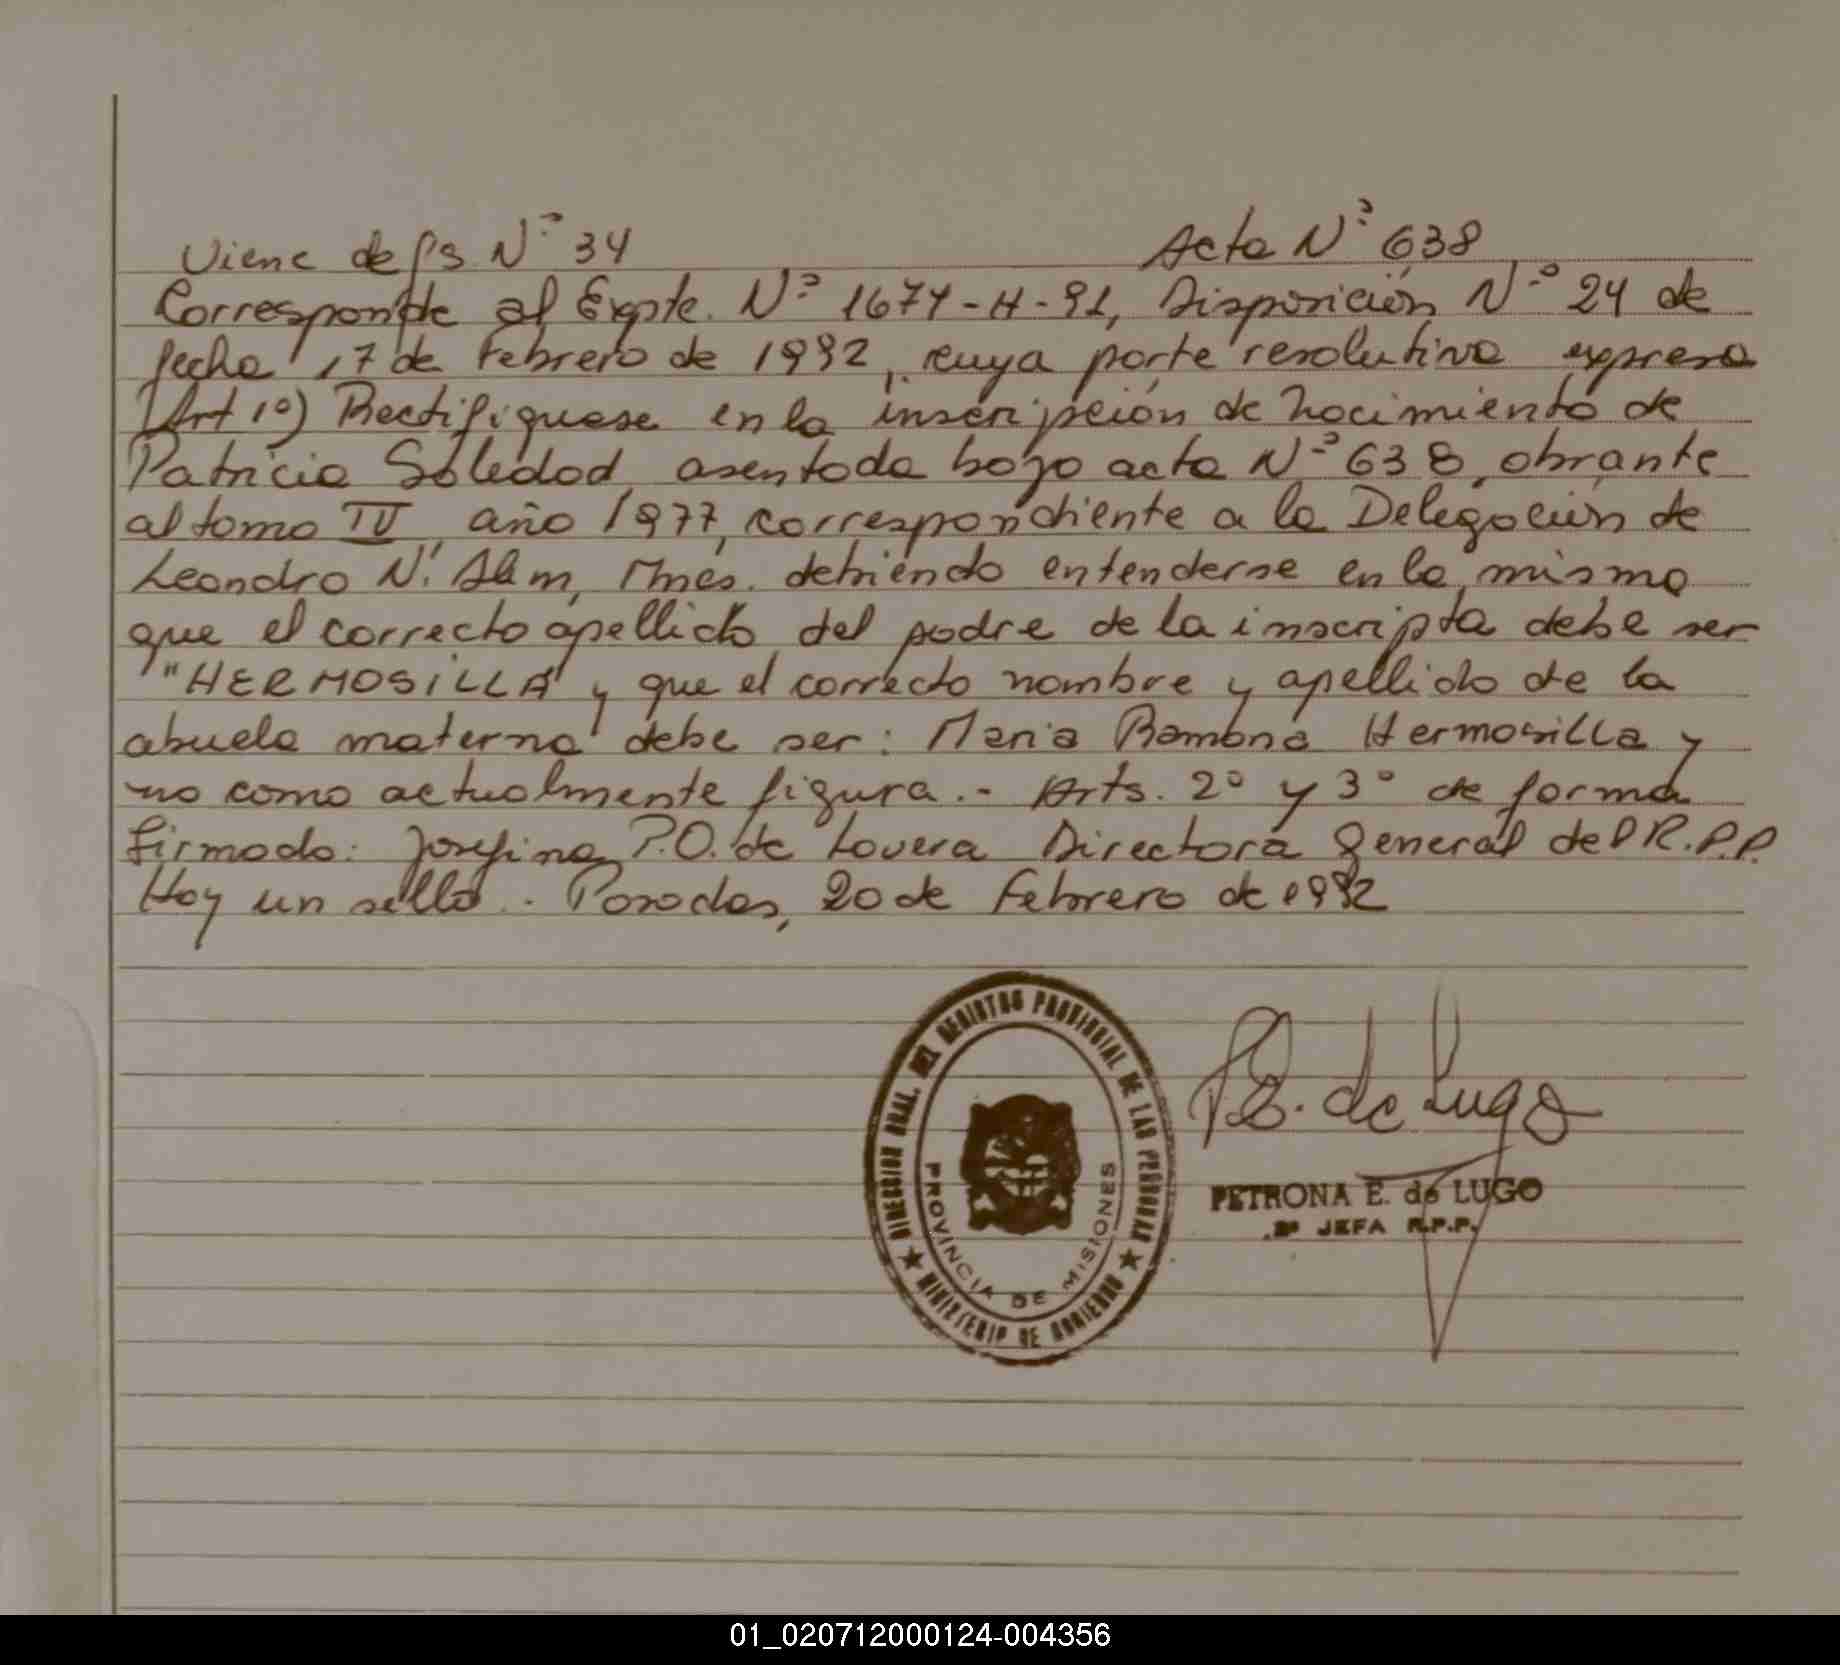 Viene de fs Nº 34 Acta Nº 638
Corresponde al Expte. Nº 1674-H-91, Disposición Nº 24 de
fecha 17 de Febrero de 1992, cuya parte resolutiva expresa
(Art 1º) Rectifíquese en la inscripción de nacimiento de
Patricia Soledad, asentada bajo acta Nº 638, obrante
al tomo IV, año 1977, correspondiente a la Delegación de
Leandro N. Alem, Mnes. debiendo entenderse en la misma
que el correcto apellido del padre de la inscripta debe ser
"HERMOSILLA" y que el correcto nombre y apellido de la
abuela materna debe ser: Maria Ramona Hermosilla y
no como actualmente figura.- Arts. 2º y 3º de forma
firmado: Josefina P.O. de Lovera Directora General del R.P.P.
Hay un sello.- Posadas, 20 de Febrero de 1992
DIRECCION GRAL. DEL REGISTRO PROVINCIAL DE LAS PERSONAS
MINISTERIO DE GOBIERNO
PROVINCIA DE MISIONES
P.E. de Lugo
PETRONA E. de LUGO
2ª JEFA R.P.P.
01_020712000124-004356